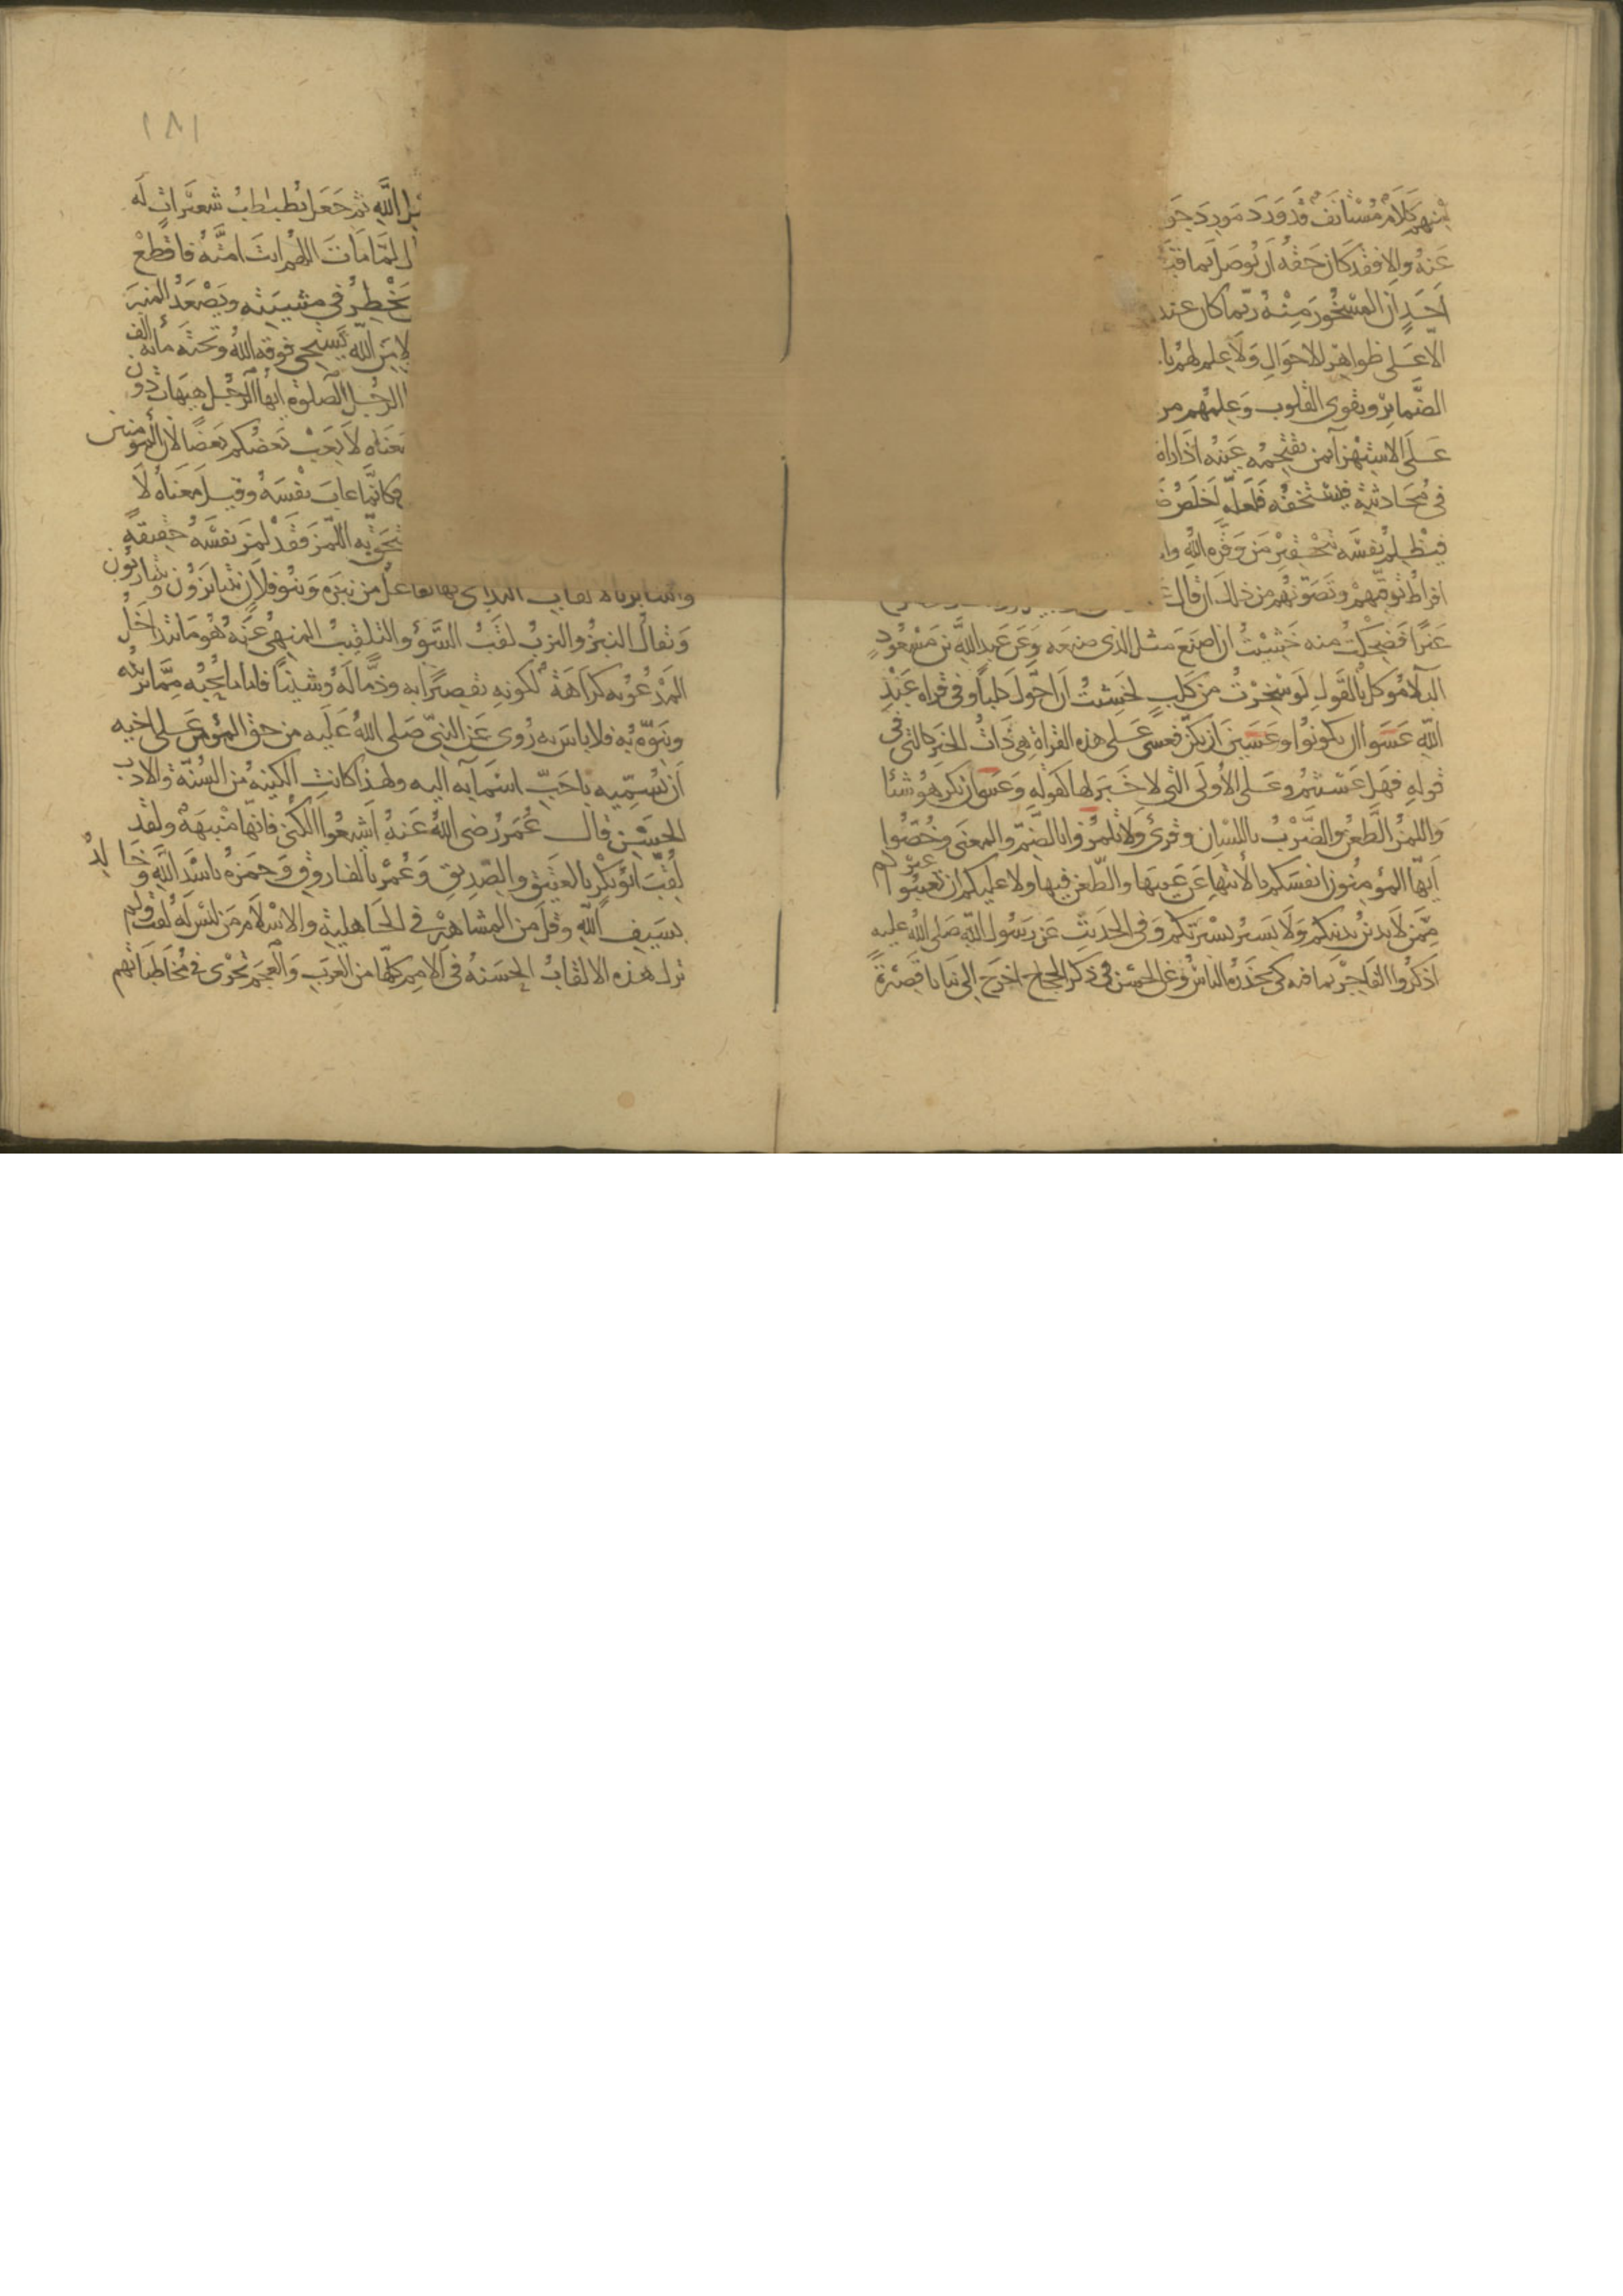 منهم كلام مستانف قد ورد مورد جو
عنه والا فقد كان حقه ان يوصل بما قبـ
احد ان المسخور منه ربما كان عند
الا على ظواهر الاحوال ولا علم لهم با
الضمائر وتقوى القلوب وعلمهم مر
على الاستهزا بمن تقتحمه عينه اذا راه
في محادثته فيستخفه فلعله اخلص ضـ
فيظلم نفسه بتحقير من وقره الله وا
افراط توقيهم وتصونهم من ذلك ان قال
عنزا فضحكت منه خشيت ان اصنع مثل الذي صنعه وعن عبد الله بن مسعود
البلا موكل بالقول لو سخرت من كلب لخشيت ان احول كلبا وفي قراه عبد
الله عسوا ان يكونوا وعسين ان يكن فعسى على هذه القراة هي ذات الخبر كالتي في
قوله فهل عسيتم وعلى الاولى التي لا خبر لها كقوله وعسى ان تكرهوا شيئا
واللمز الطعن والضرب باللسان وقرئ ولا تلمزوا بالضم والمعنى وخصوا
ايها المؤمنون انفسكم بالانتهاء عن عيبها والطعن فيها ولا عليكم ان تعيبوا غيركم
ممن لا يدين بدينكم ولا يسير بسيرتكم وفي الحديث عن رسول الله صلى الله عليه
اذكروا الفاجر بما فيه كي يحذره الناس وعن الحسن في ذكر الحجاج اخرج الي بنانا قصيرة
١٨١
ـيل الله ثم جعل يطبطب شعيرات له
ل لما مات اللهم انت امته فاقطع
يخطر في مشيته ويصعد المنبر
لا من الله يستحي فوقه الله وتحته مائة الف
الرجل الصلوة ايها الرجل هيهات دون
معناه لا يعب بعضكم بعضا لان المؤمنين
فكانما عاب نفسه وقيل معناه لا
تحق به اللمز فقد لمز نفسه حقيقة
والتنابز بالالقاب التداعي بها تفاعل من نبزه وبنو فلان يتنابزون ويتنازبون
ويقال النبز والنزب لقب السوء والتلقيب المنهي عنه هو ما يتداخل
المدعو به كراهة لكونه تقصيرا به وذما له وشينا فاما ما يحبه مما يزينه
وينوه به فلا باس به روي عن النبي صلى الله عليه من حق المؤمن على اخيه
ان يسميه باحب اسمايه اليه ولهذا كانت التكنيه من السنة والادب
الحسن قال عمر رضي الله عنه اشيعوا الكنى فانها منبهة ولقد
لقب ابو بكر بالعتيق والصديق وعمر بالفاروق وحمزة باسد الله وخالد
بسيف الله وقل من المشاهير في الجاهلية والاسلام من ليس له لقب ولم
تزل هذه الالقاب الحسنة في الامم كلها من العرب والعجم تجري في مخاطباتهم